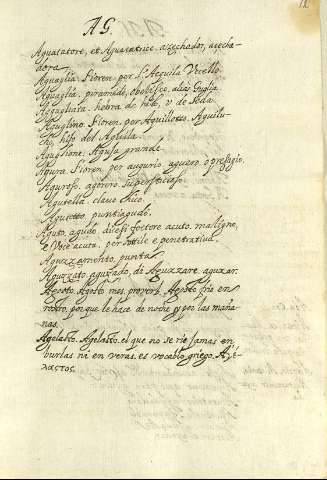 12
AG.
Aguatatore, et Aguatatrice. azechador, azecha-
dora.
Aguaglia. Fioren. por l'Aquila Vccello.
Aguaglia, piramide, obelisco, alias Guglia
Agugliata, hebra de hilo, o de seda
Aguglino. Fioren. por Aquilotto. Aguilu-
cho, hijo del Aguila.
Aguglione. Aguja grande.
Agura. Fioren. per augurio. aguero, o presagio.
Aguroso. agorero supersticioso.
Agutello. clavo chico.
Agutetto. puntiagudo.
Aguto, agudo. dicesi fortore acuto. maligne,
e Voce acuta, per sottile e penetrativa.
Aguzzamento. punta
Aguzzato, aguzado, de Aguzzare. aguzar.
Agosto. Agosto mes. proverb. Agosto frio en
rostro, porque le haze de noche y por las maña-
nas.
Agelasto. Agelasto. el que no se rie jamas en
burlas ni en veras. es vocablo griego. Ἀγέ-
λαστος.